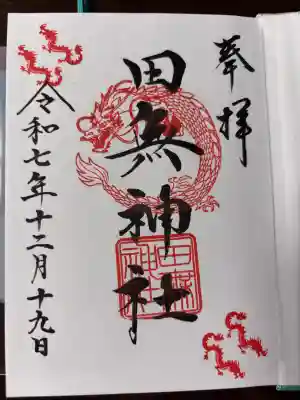 奉拝
田無神社
令和七年十二月十九日
田無
神社